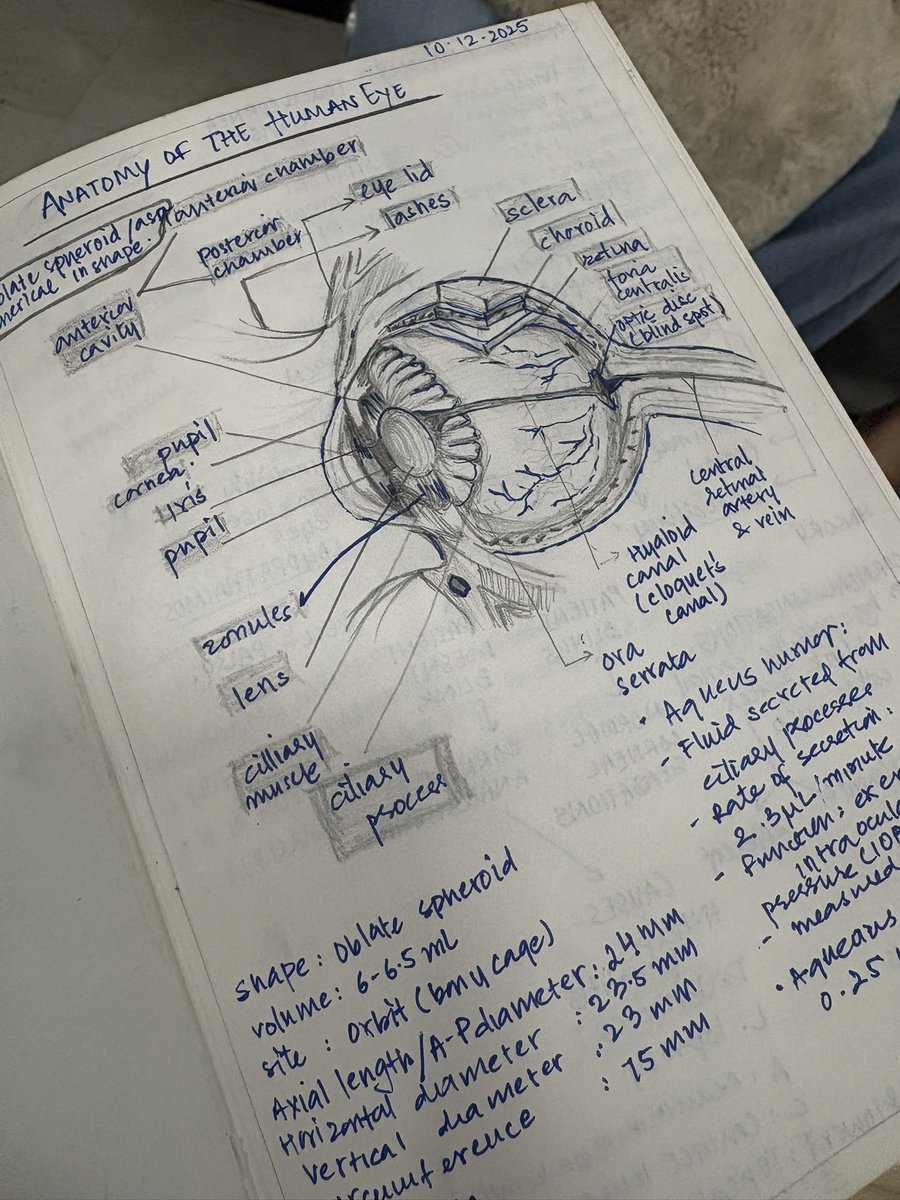 10-12-2025
ANATOMY OF THE HUMAN EYE
late spheroid / asp
herical in shape.
anterior chamber
posterior
chamber
eye lid
lashes
anterior
cavity
sclera
choroid
retina
foria
centralis
optic disc
(blind spot)
pupil
cornea
iris
pupil
zonules
lens
cilliary
muscle
ciliary
procces
central
retinal
artery
& vein
Hyaloid
canal
(cloquet's
canal)
ora
serrata
• Aqueus humor:
- Fluid secreted from
ciliary processes
- Rate of secretion:
2.3 µL/minute
- Function: exer
intraocul
pressure (IOP
- measured
• Aqueous
0.25
shape: Oblate spheroid
volume: 6-6.5 mL
site : Orbit (bony cage)
Axial length/A-P diameter: 24 mm
Horizontal diameter : 23.5 mm
vertical diameter : 23 mm
rcumference : 75 mm